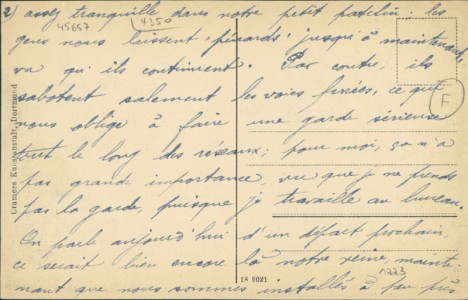 2) assez tranquille dans notre petit patelin: les
45657 4350
gens nous laissent "pénards" jusqu'à maintenant,
vu qu'ils continuent. Par contre, ils
sabotent salement les voies ferrées, ce qui
F
nous oblige à faire une garde sérieuse
tout le long des réseaux; pour moi, ça n'a
pas grande importance, vu que je ne prends
pas la garde, puisque je travaille au bureau.
On parle aujourd'hui d'un départ prochain,
ce serait bien encore là notre veine, mainte-
1223
nant que nous sommes installés à peu près
Cramers Kunstanstalt, Dortmund
18 9021